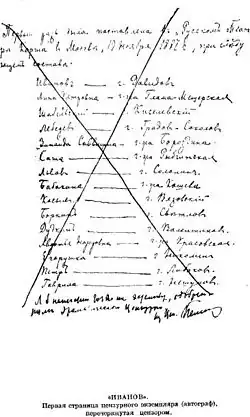 Первый раз была поставлена в „Русском теа-
ре Корша в Москве, 19 ноября 1887 г., при следу
ющем составе:
Иванов — г. Давыдов
Анна Петровна — г-жа Глама-Мещерская
Шабельский — Киселевский
Лебедев — г. Градов-Соколов
Зинаида Саввишна — г-жа Бороздина
Саша — г-жа Рыбчинская
Львов — г. Солонин
Бабакина — г-жа Кошева
Косых — г. Вязовский
Боркин — г. Светлов
Дудкин — г. Валентинов
Авдотья Назаровна — г-жа Красовская
Егорушка — г.
Петр — г.
Гаврила — г.
«ИВАНОВ».
Первая страница цензурного экземпляра (автограф),
перечеркнутая цензором.